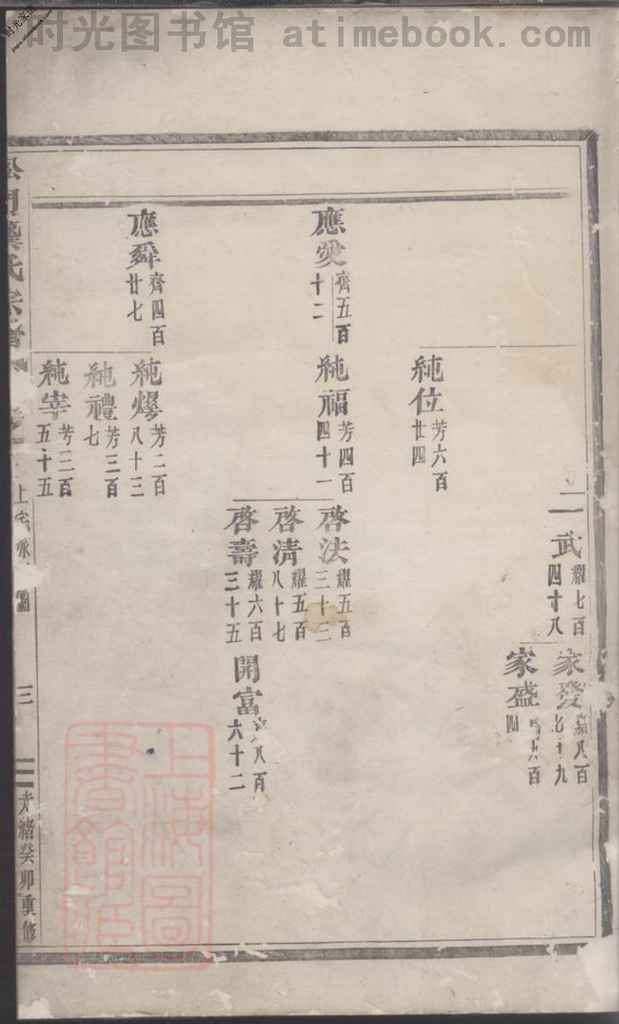 时光图书馆 atimebook.com
二武 耀七百四十八
家發 八百七十九
家盛 六百四
純位 芳六百廿四
應 齊五百十二
純福 芳四百四十一
啓法 耀五百三十三
啓清 耀五百八十七
啓壽 耀六百三十五
開富 八百六十二
應舜 齊四百廿七
純 芳二百八十三
純禮 芳三百七
純宰 芳三百五十五
氏宗譜
三
光緒癸卯重修
上海圖書館藏